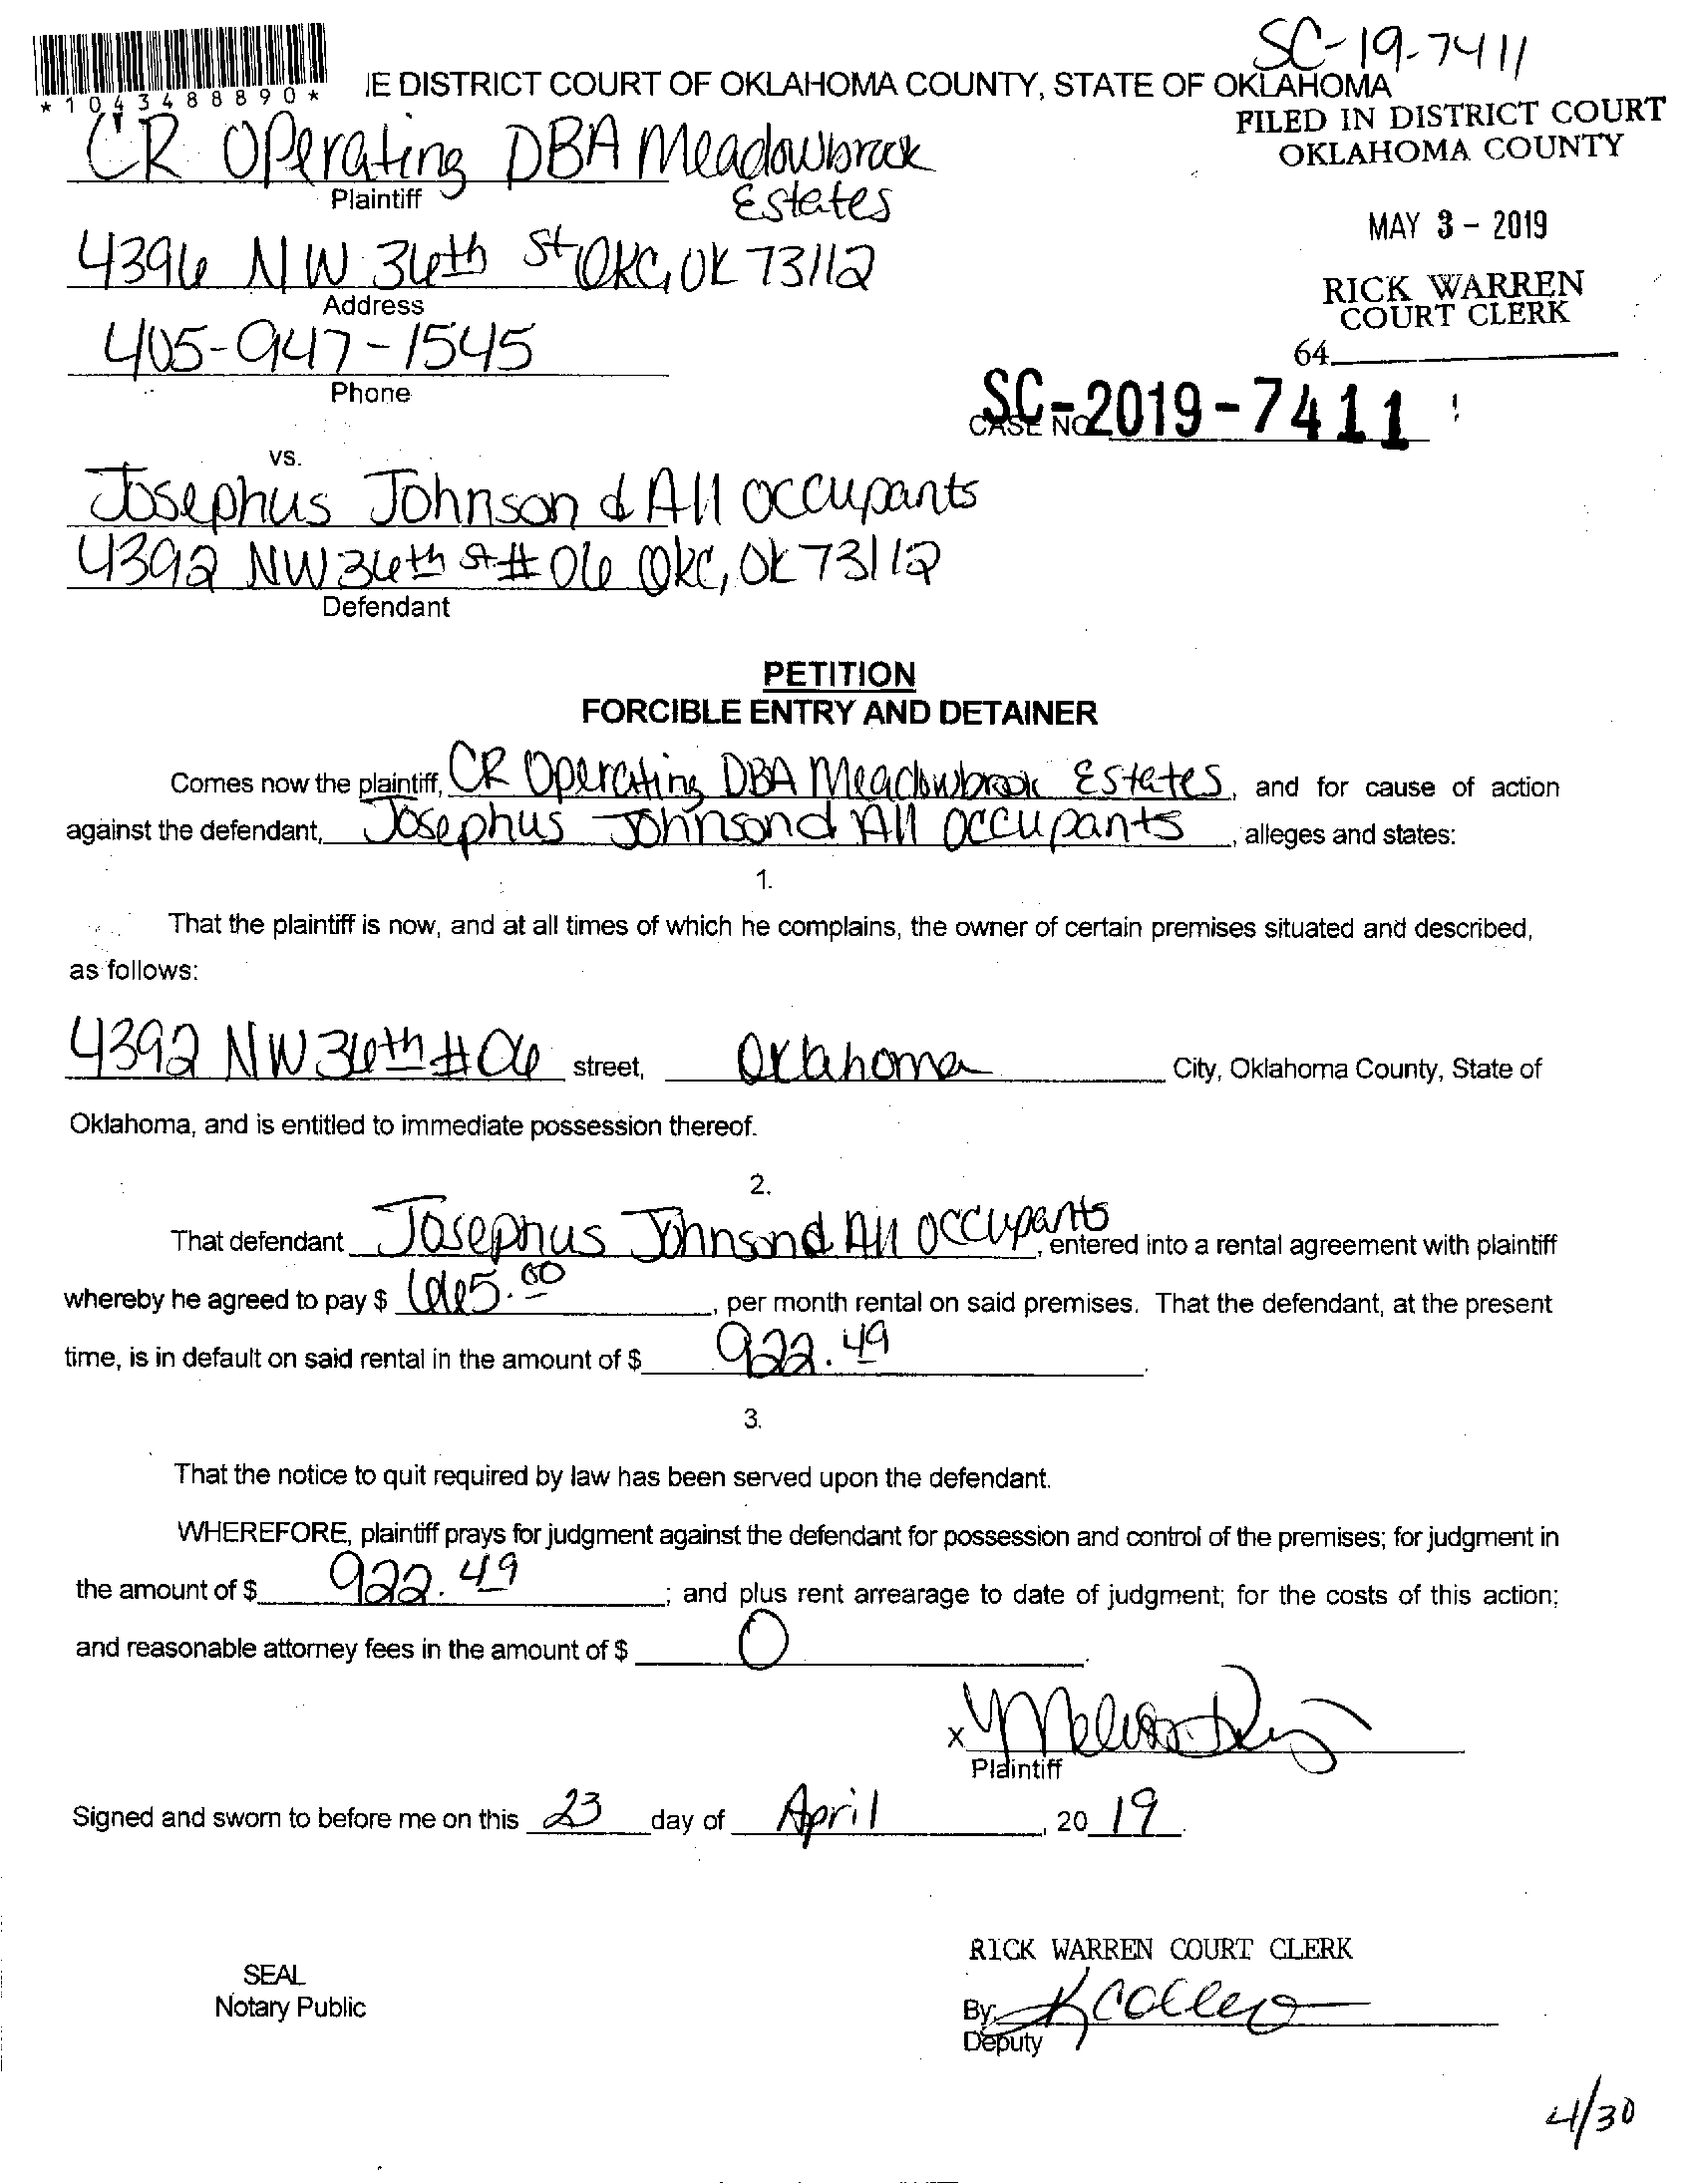 SC-19-7411
*1043488890*
IE DISTRICT COURT OF OKLAHOMA COUNTY, STATE OF OKLAHOMA
FILED IN DISTRICT COURT
OKLAHOMA COUNTY
CR Operating DBA Meadowbrook
Plaintiff
Estates
MAY 3 - 2019
4396 NW 36th St OKC, OK 73112
Address
RICK WARREN
COURT CLERK
405-947-1545
64
Phone
SC-2019-7411
CASE NO.
vs.
Josephus Johnson & All occupants
4392 NW 36th St #06 Okc, OK 73112
Defendant
PETITION
FORCIBLE ENTRY AND DETAINER
Comes now the plaintiff, CR Operating DBA Meadowbrook Estates, and for cause of action
against the defendant, Josephus Johnsond All occupants, alleges and states:
1.
That the plaintiff is now, and at all times of which he complains, the owner of certain premises situated and described,
as follows:
4392 NW 36th #06 street, Oklahoma City, Oklahoma County, State of
Oklahoma, and is entitled to immediate possession thereof.
2.
That defendant Josephus Johnsond All occupants, entered into a rental agreement with plaintiff
whereby he agreed to pay $ 665.00, per month rental on said premises. That the defendant, at the present
time, is in default on said rental in the amount of $ 922.49.
3.
That the notice to quit required by law has been served upon the defendant.
WHEREFORE, plaintiff prays for judgment against the defendant for possession and control of the premises; for judgment in
the amount of $ 922.49; and plus rent arrearage to date of judgment; for the costs of this action;
and reasonable attorney fees in the amount of $ 0.
x
Plaintiff
Signed and sworn to before me on this 23 day of April, 20 19.
RICK WARREN COURT CLERK
SEAL
Notary Public
By:
Deputy
4/30